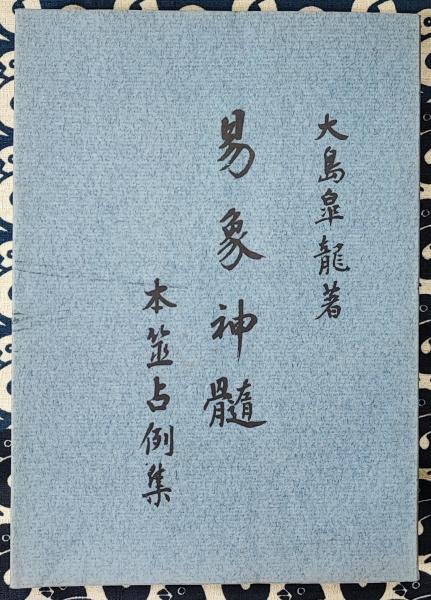 大島皐龍著
易象神髓
本筮占例集